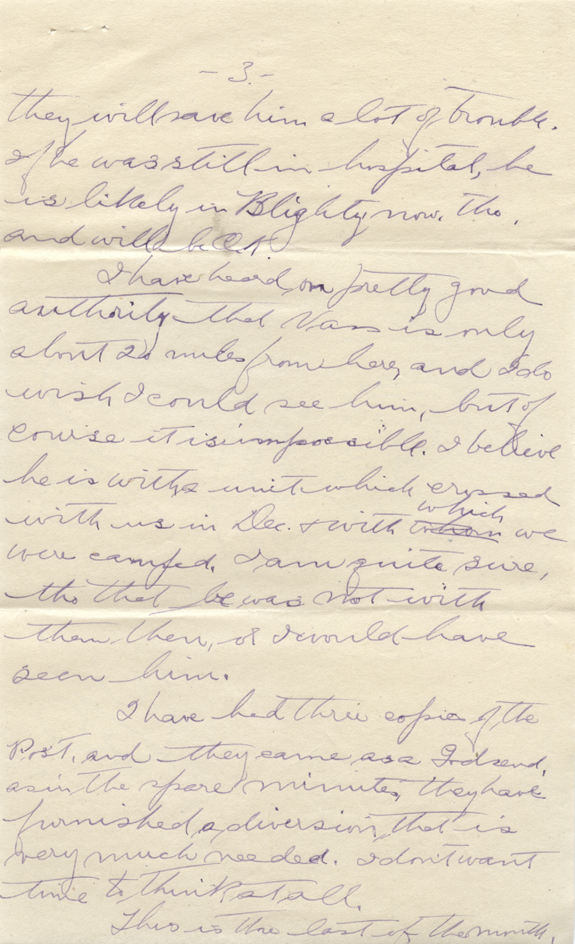 - 3. -
they will save him a lot of trouble.
If he was still in hospital, he
is likely in Blighty now, tho,
and will be O.K
I have heard, on pretty good
authority that Vass is only
about 20 miles from here, and I do
wish I could see him, but of
course it is impossible. I believe
he is with a unit which crossed
with us in Dec. & with which we
were camped. I am quite sure,
tho that he was not with
them then, or I would have
seen him.
I have had three copies of the
Post, and they came as a Godsend,
as in the spare minutes, they have
furnished a diversion that is
very much needed. I don't want
time to think at all.
This is the last of the month,